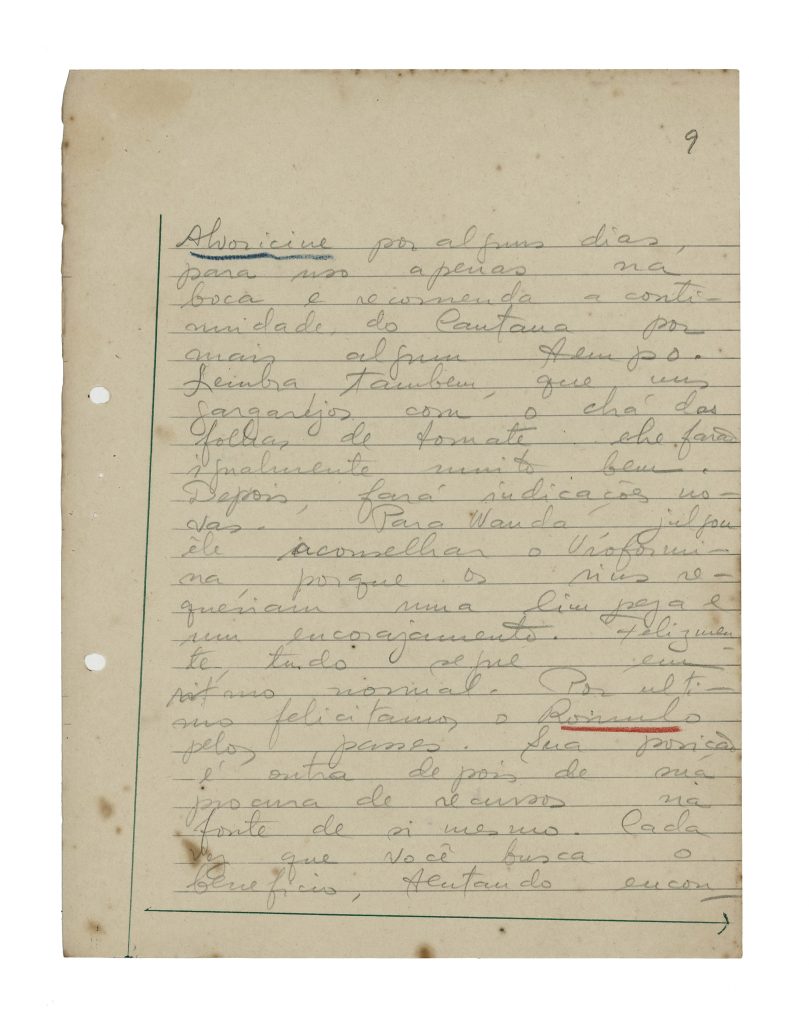 9
Alvoricine por alguns dias,
para uso apenas na
boca e recomenda a conti-
nuidade do Cantana por
mais algum tempo.
Lembra tambem, que uns
gargarejos com o chá das
folhas de tomate lhe farão
igualmente muito bem.
Depois, fará indicações no-
vas. Para Wanda julgou
êle aconselhar o Uroformi-
na, porque os rins re-
queriam uma limpeza e
um encorajamento. Felizmen-
te, tudo segue em
ritmo normal. Por ulti-
mo felicitamos o Romulo
pelos passes. Sua posição
é outra depois de sua
procura de recursos na
fonte de si mesmo. Cada
vez que você busca o
beneficio, tentando encon-